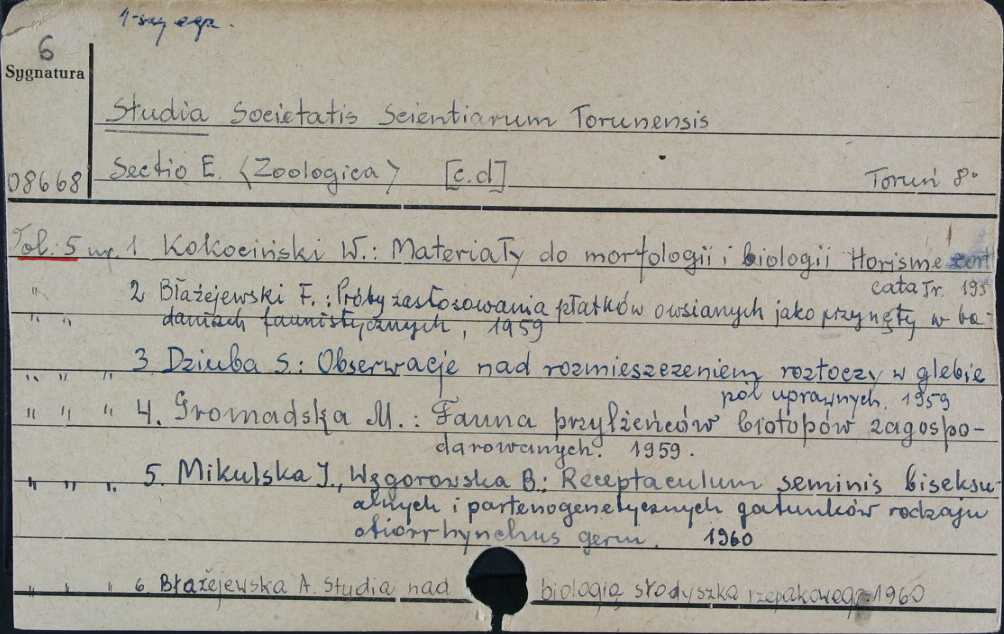 1-szy egz.
6
Sygnatura
Studia Societatis Scientiarum Torunensis
08668 Sectio E. (Zoologica) [c.d] Toruń 8°
Tol. 5 nr. 1 Kokociński W.: Materiały do morfologii i biologii Horisme
cata Tr. 195
" 2 Błażejewski F.: Próby zastosowania płatków owsianych jako przynęty w ba-
" " daniach faunistycznych, 1959
" " " 3 Dziuba S.: Obserwacje nad rozmieszczeniem roztoczy w glebie
pól uprawnych. 1959
" " " 4. Gromadska M.: Fauna przyłżeńców biotopów zagospo-
darowanych. 1959.
" " " 5. Mikulska J., Węgorowska B.: Receptaculum seminis biseksu-
alnych i partenogenetycznych gatunków rodzaju
otiorrhynchus germ. 1960
" " " 6. Błażejewska A. Studia nad biologią słodyszka rzepakowego 1960